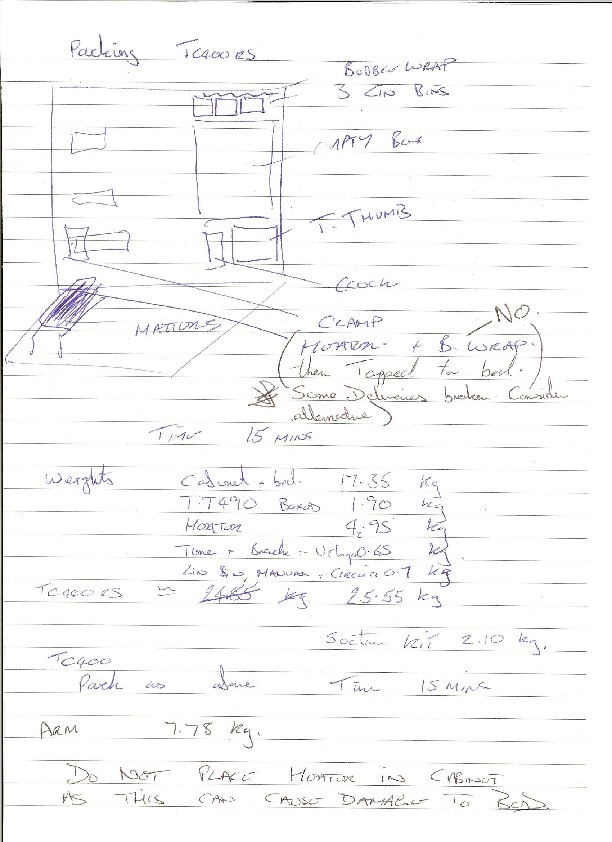 Packing TC400RS
BUBBLE WRAP
3 LIN BINS
MPTY BOX
T. THUMB
CLOCK
CLAMP
NO.
MATIONS
(MOATOR. + B. WRAP.
then Tapped to bed.
Some Deliveries broken. Consider
alternative)
TIME 15 MINS
Weights Cabinet + bed. 17.35 Kg
T.T490 BOXED 1.90 Kg
MOATOR 4.95 Kg
Time + Bracke + 0.65 Kg
LIN BIN, MANUAL + 0.7 Kg
TC400RS = 24.85 kg 25.55 kg
Suction KIT 2.10 kg.
TC400
Pack as above Time 15 MINS
ARM 7.78 kg.
DO NOT PLACE MOATOR IN CABINET
AS THIS CAN CAUSE DAMAGE TO BED.